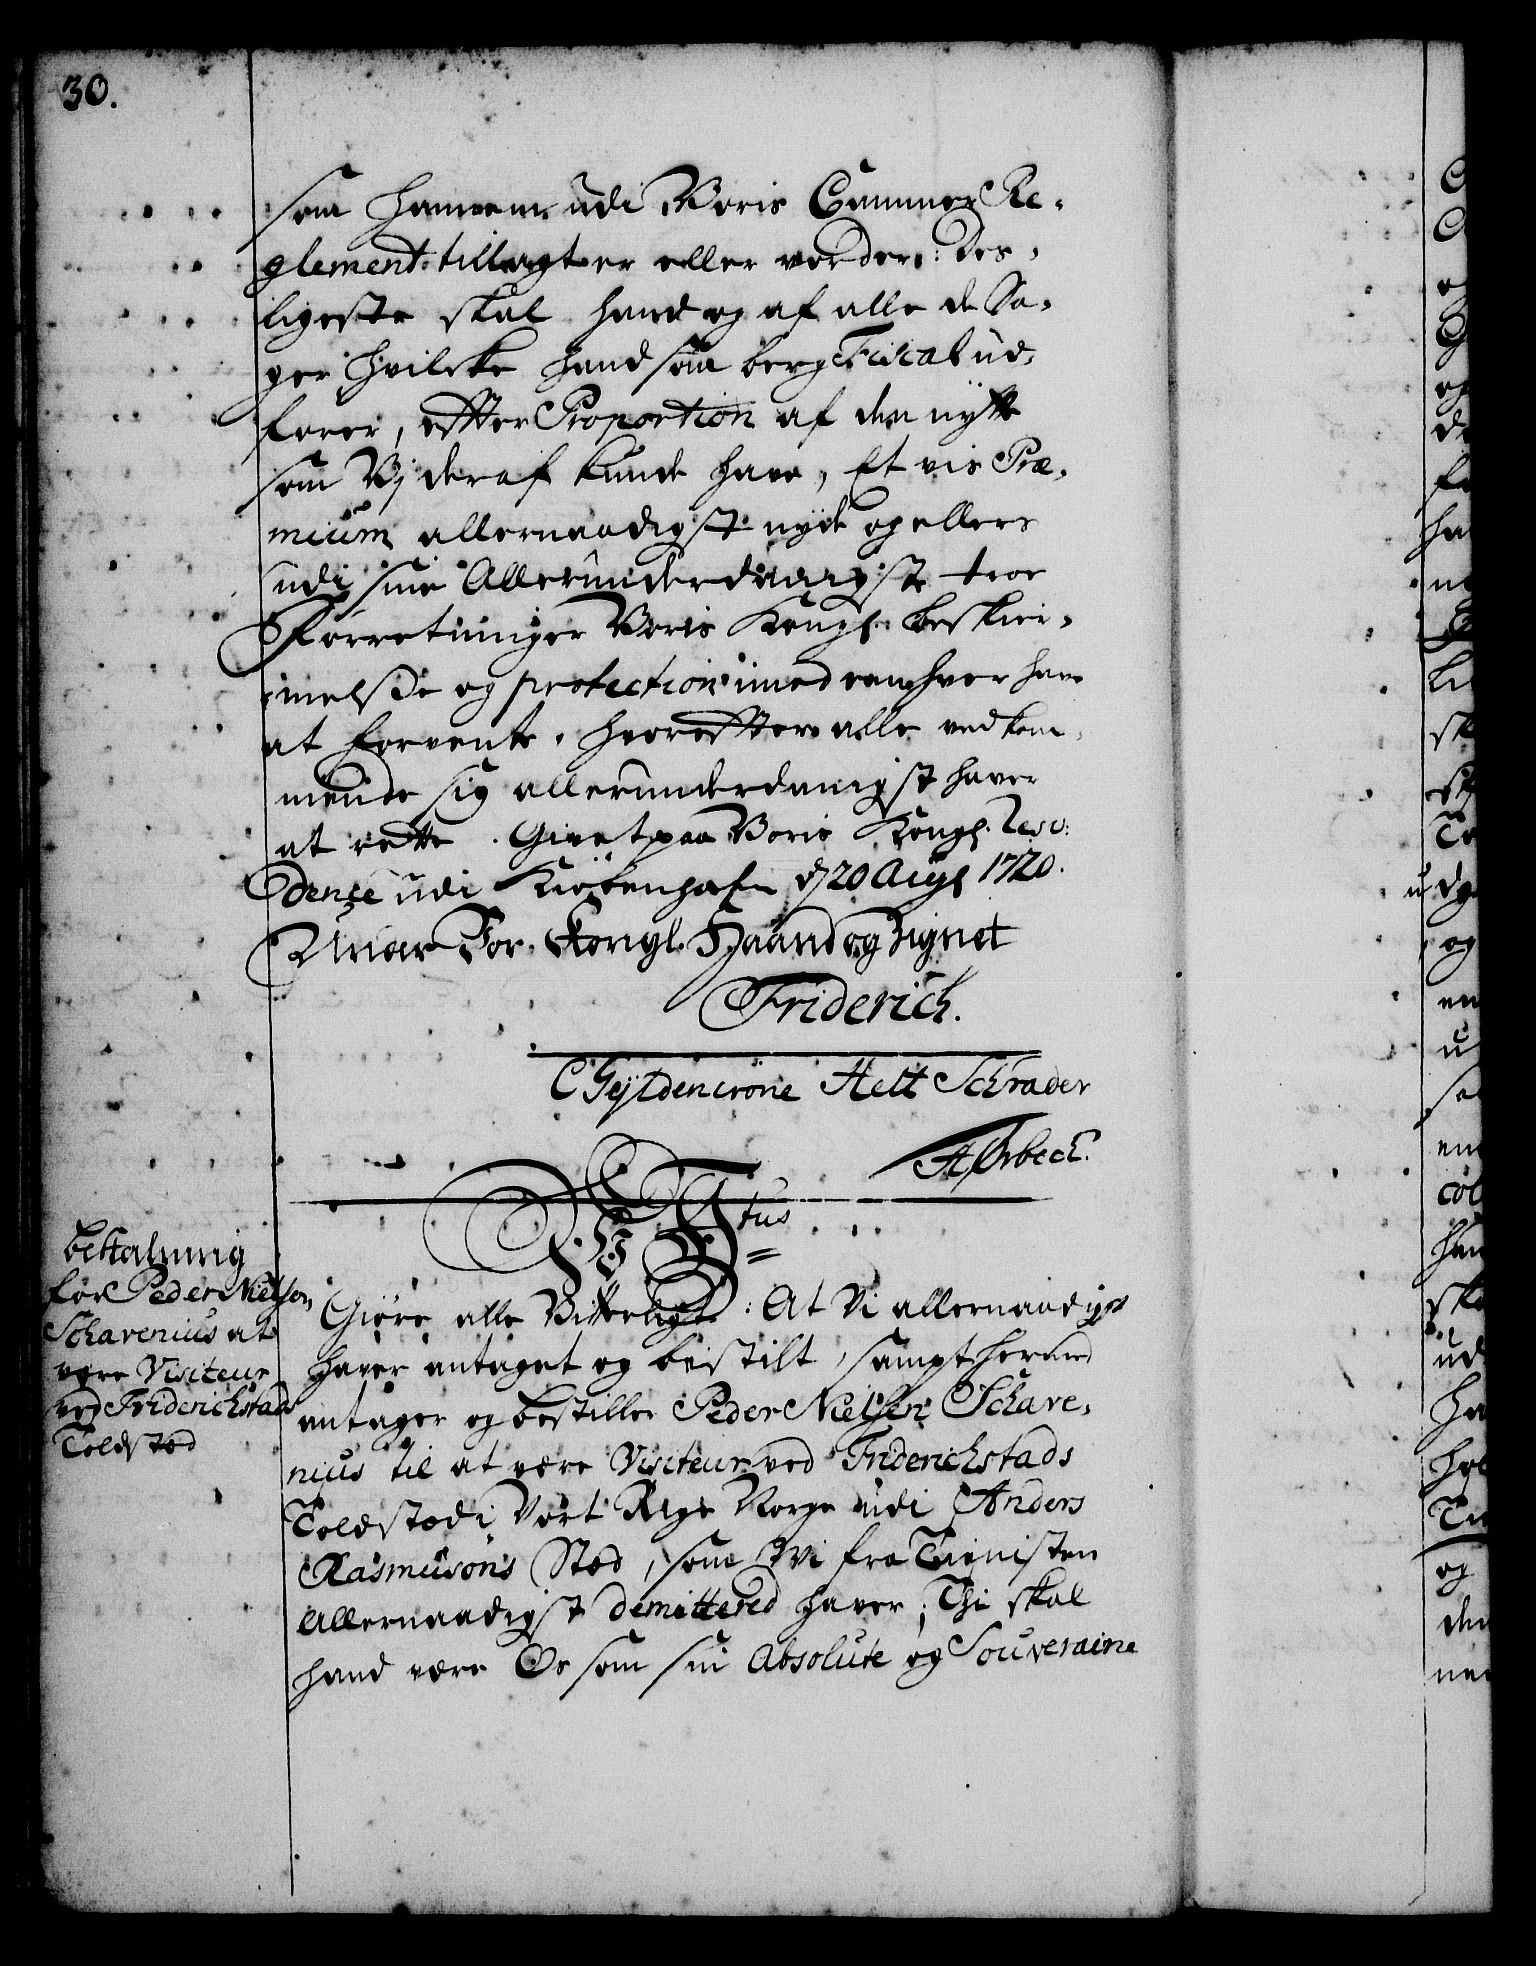 30.
som hannem udi Voris Cammer Re-
glement tillagt er eller vorder: des-
ligeste skal hand og af alle de Sa-
ger hvilcke hand som berg Fiscal ud-
fører, effter Proportion af den nytte
som Vj deraf kunde have, Et vis Præ-
mium allernaadigst nyde og ellers
udi sine Allerunderdanigste troe
Forretninger Voris Kongl. beskier-
melsße og protection imod eenhver have
at forvente. Hvoreffter alle vedkom-
mende sig allerunderdanigst haver
at rette. Givet paa Voris Kongl. Resi-
dence udi Kiøbenhafn d 20 Augs 1720.
Under Vor Kongl. Haand og Zignet
Friderich.
C Gÿldencrone Helt Schrader
A Ørbech.
F 4tus
bestalning
for Peder Nielsøn
Schavenius at
være Visiteur
ved Friderichstads
Toldsted
Giøre alle Vitterligt: At Vi allernaadigst
haver antaget og bestilt, sampt hermed
antager og bestiller Peder Nielsen Schave-
nius til at være Visiteur ved Friderichstads
Toldsted i Vort Rige Norge udi Anders
Rasmusøns Sted, som Wi fra Tienisten
Allernaadigst demittered haver; Thi skal
hand være Os som sin Absolute og Souveraine